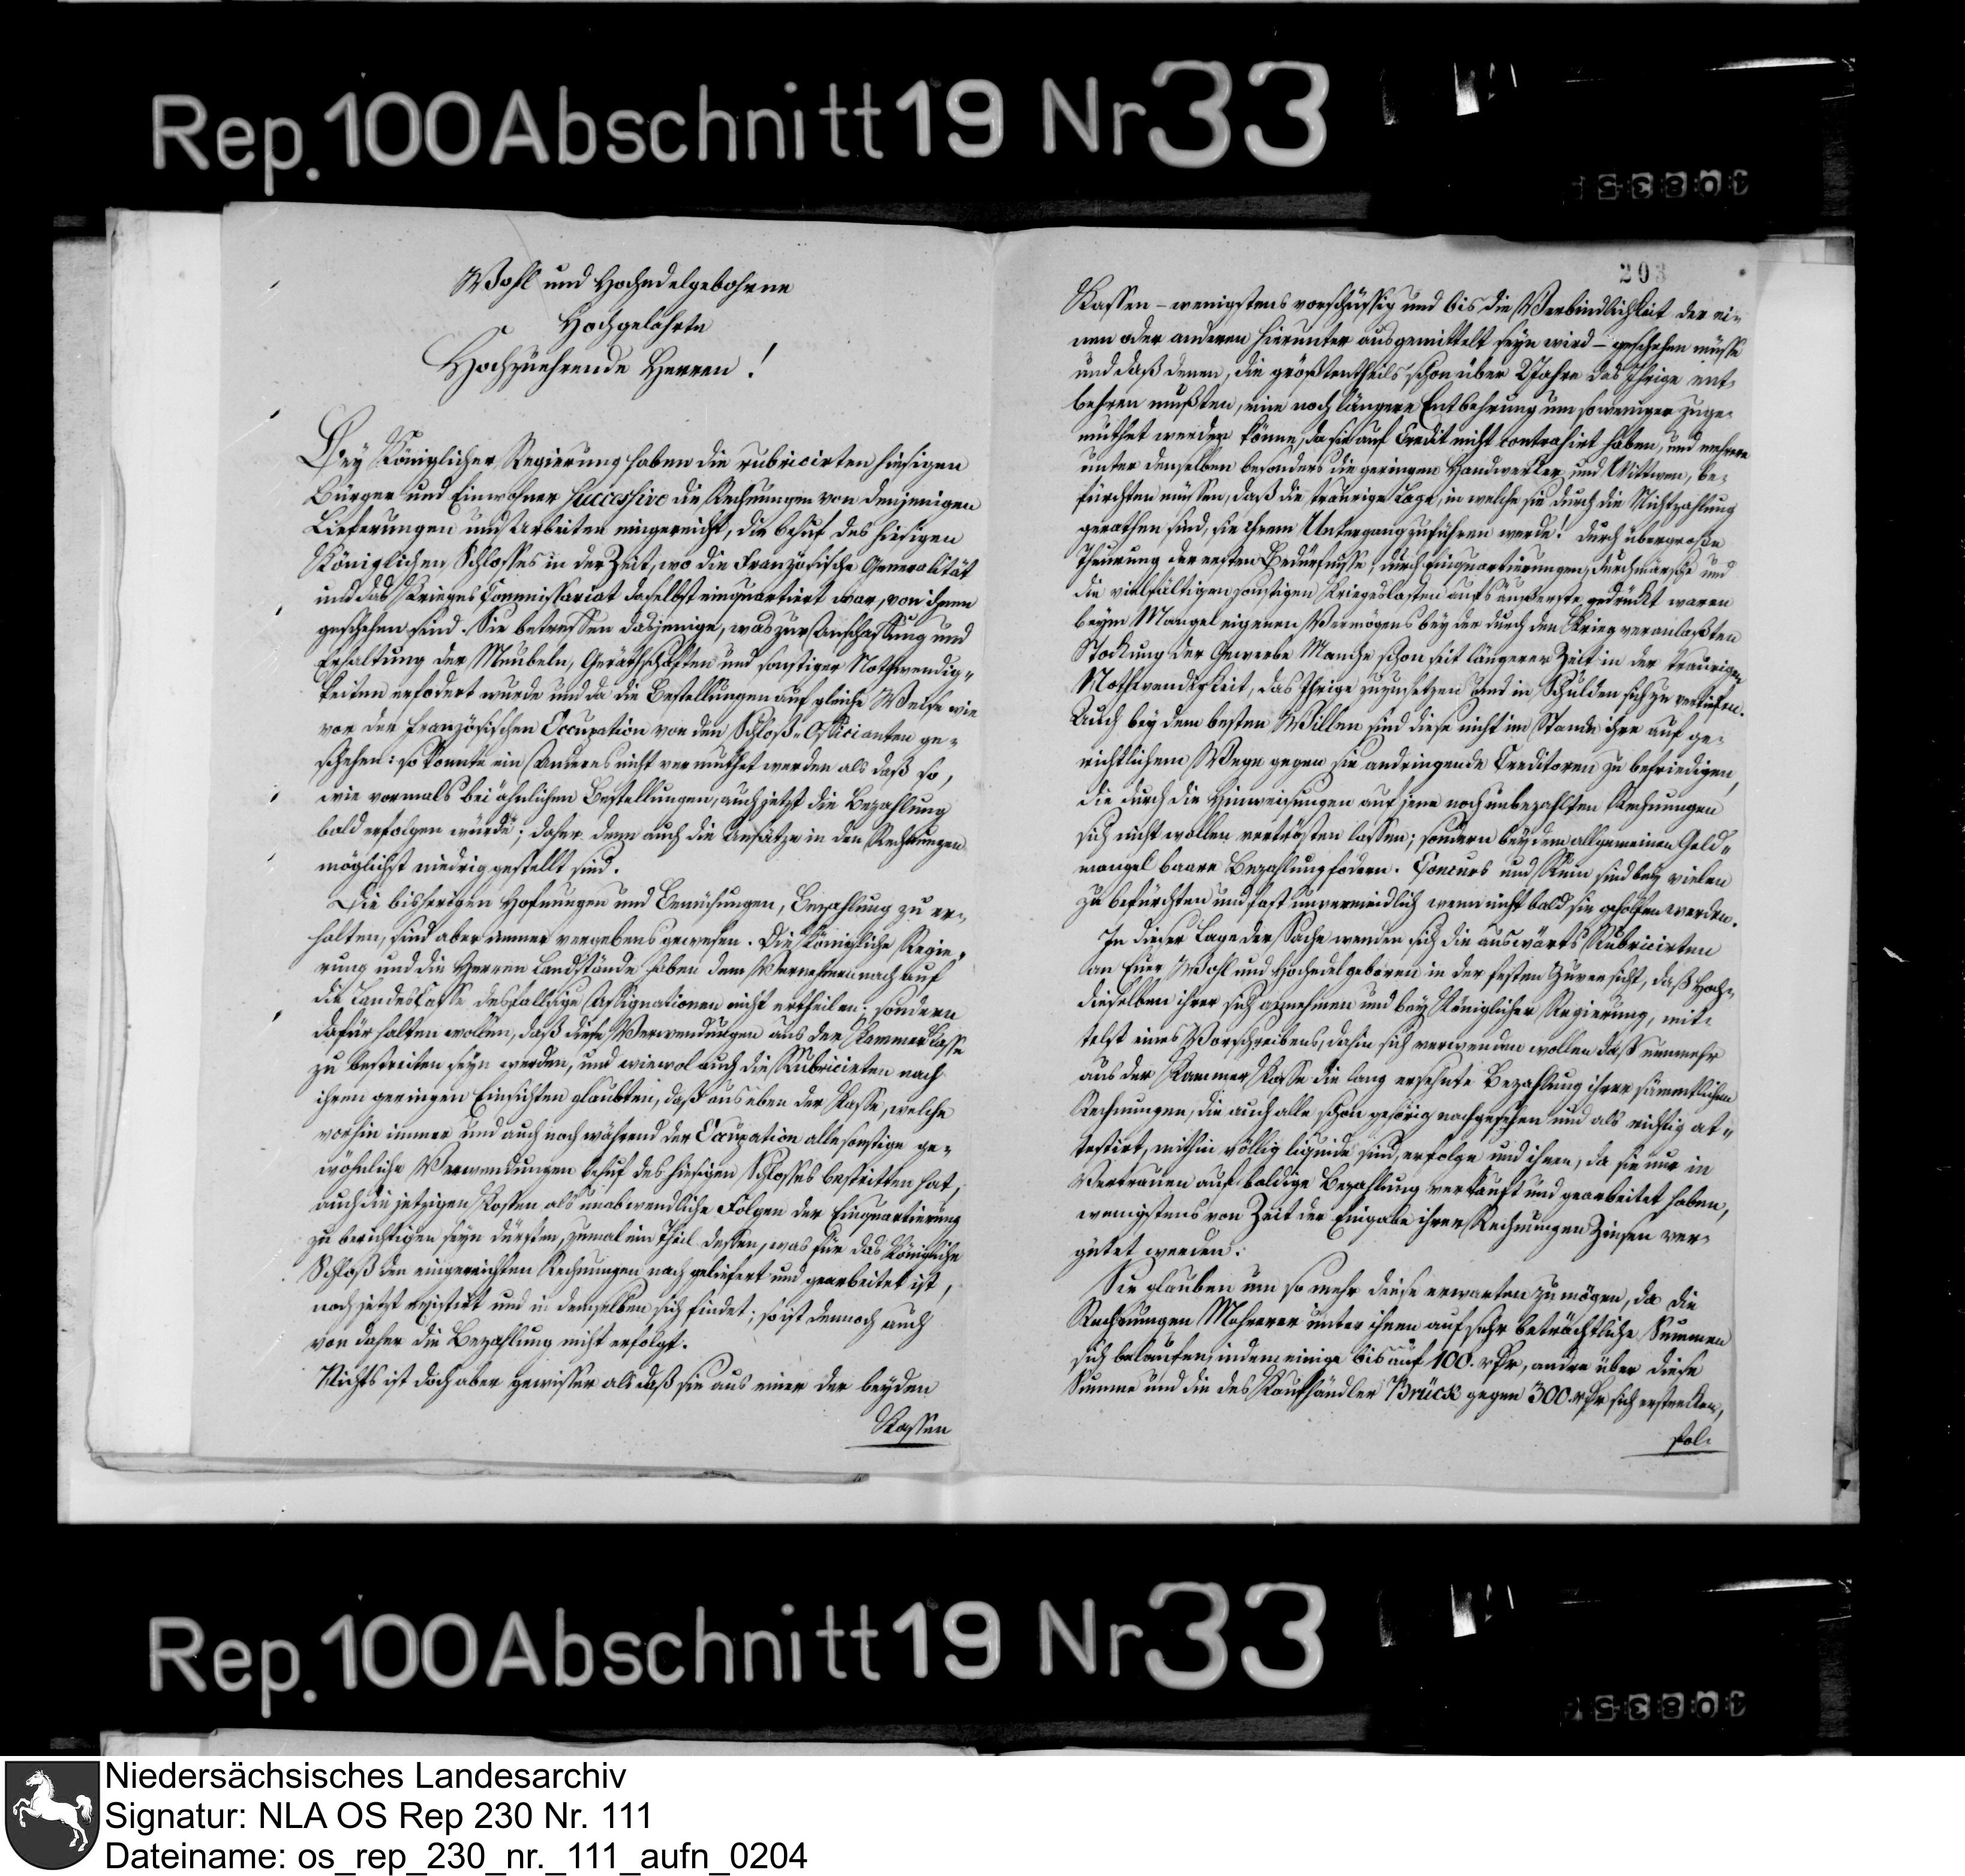 Rep. 100 Abschnitt 19 Nr 33
40835
Wohl und Hochedelgebohrne
Hochgelahrte
Hochzuehrende Herren!
Bey Königlicher Regierung haben die rubricirten hiesigen
Bürger und Einwohner successive die Rechnungen von denjenigen
Lieferungen und Arbeiten eingereicht, die behuf des hiesigen
Königlichen Schlosses in der Zeit, wo die Französische Generalität
und das Krieges Commissariat daselbst einquartiert war, von ihnen
geschehen sind. Sie betreffen dasjenige, was zur Anschaffung und
Erhaltung der Meubeln, Geräthschaften und sonstiger Nothwendig-
keiten erfodert wurde und da die Bestellungen auf gleiche Weise wie
vor der französischen Occupation von den Schloß-Officianten ge-
schehen: so konnte ein Anderes nicht vermuthet werden als daß so,
wie vormals bei ähnlichen Bestellungen, auch jetzt die Bezahlung
bald erfolgen würde; daher denn auch die Ansätze in den Rechnungen
möglichst niedrig gestellt sind.
Die bisherigen Hofnungen und Bemühungen, Bezahlung zu er-
halten, sind aber immer vergebens gewesen. Die Königliche Regie-
rung und die Herren Landstände haben dem Vernehmen nach auf
die Landescasse desfallsige Assignationen nicht ertheilen; sondern
dafür halten wollen, daß diese Verwendungen aus der Kammer Casse
zu bestreiten seyn werden, und wiewol auch die Rubricirten nach
ihren geringen Einsichten glaubten, daß aus eben der Kasse, welche
vorhin immer und auch noch während der Occupation alle sonstige ge-
wöhnliche Verwendungen behuf des hiesigen Schlosses bestritten hat,
auch die jetzigen Kosten als unabwendliche Folgen der Einquartierung
zu berichtigen seyn dürften, zumal ein Theil dessen, was für das Königliche
Schloß den eingereichten Rechnungen nach geliefert und gearbeitet ist,
noch jetzt existirt und in demselben sich findet; so ist dennoch auch
von daher die Bezahlung nicht erfolgt.
Nichts ist doch aber gewisser als daß sie aus einer der beyden
Kassen
203
Kassen - wenigstens vorschüssig und bis die Verbindlichkeit der ei-
nen oder anderen hierunter ausgemittelt seyn wird - geschehen müsse
und daß denen, die größtentheils schon über 2 Jahre das Ihrige ent-
behren mußten, eine noch längere Entbehrung um so weniger zuge-
muthet werden könne, da sie auf Credit nicht contrahirt haben, und mehrere
unter denselben besonders die geringen Handwerker und Wittwen, be-
fürchten müssen, daß die traurige Lage, in welche sie durch die Nichtzahlung
gerathen sind, sie ihrem Untergang zuführen werde! Durch übergroße
Theurung der ersten Bedürfnisse, durch Einquartierungen, Durchmärsche und
die vielfältigen sonstigen Kriegeslasten aufs äusserste gedrückt waren
beym Mangel eigenen Vermögens bey der durch den Krieg veranlaßten
Stockung der Gewerbe Manche schon seit längerer Zeit in der traurigen
Nothwendigkeit, das Ihrige zuzusetzen und in Schulden sich zu vertiefen.
Auch bey dem besten Willen sind diese nicht im Stande ihre auf ge-
richtlichem Wege gegen sie andringende Creditoren zu befriedigen,
die durch die Hinweisungen auf jene noch unbezahlten Rechnungen
sich nicht wollen vertrösten lassen; sondern bey dem allgemeinen Geld-
mangel baare Bezahlung fodern. Concurs und Ruin sind bey vielen
zu befürchten und fast unvermeidlich wenn nicht bald sie geholfen werden.
In dieser Lage der Sache wenden sich die auswärts Rubricirten
an Euer Wohl und Hochedelgeboren in der festen Zuversicht, daß Hoch-
dieselben ihrer sich annehmen und bey Königlicher Regierung, mit-
telst eines Vorschreibens, dahin sich verwenden wollen daß nunmehr
aus der Kammer Kasse die lang ersehnte Bezahlung ihrer sämmtlichen
Rechnungen, die auch alle schon gehörig nachgesehen und als richtig at-
testirt, mithin völlig liquide sind, erfolge und ihnen, da sie nur in
Vertrauen auf baldige Bezahlung verkauft und gearbeitet haben,
wenigstens von Zeit der Eingabe ihrer Rechnungen Zinsen ver-
gütet werden.
Sie glauben um so mehr diese erwarten zu mögen, da die
Rechnungen Mehrerer unter ihnen auf sehr beträchtliche Summen
sich belaufen, indem einige bis auf 100. rthr, andre über diese
Summe und die des Kaufhändler Brück gegen 300 rthr sich erstrecken,
sol-
Rep. 100 Abschnitt 19 Nr 33
40835
Niedersächsisches Landesarchiv
Signatur: NLA OS Rep 230 Nr. 111
Dateiname: os_rep_230_nr._111_aufn_0204